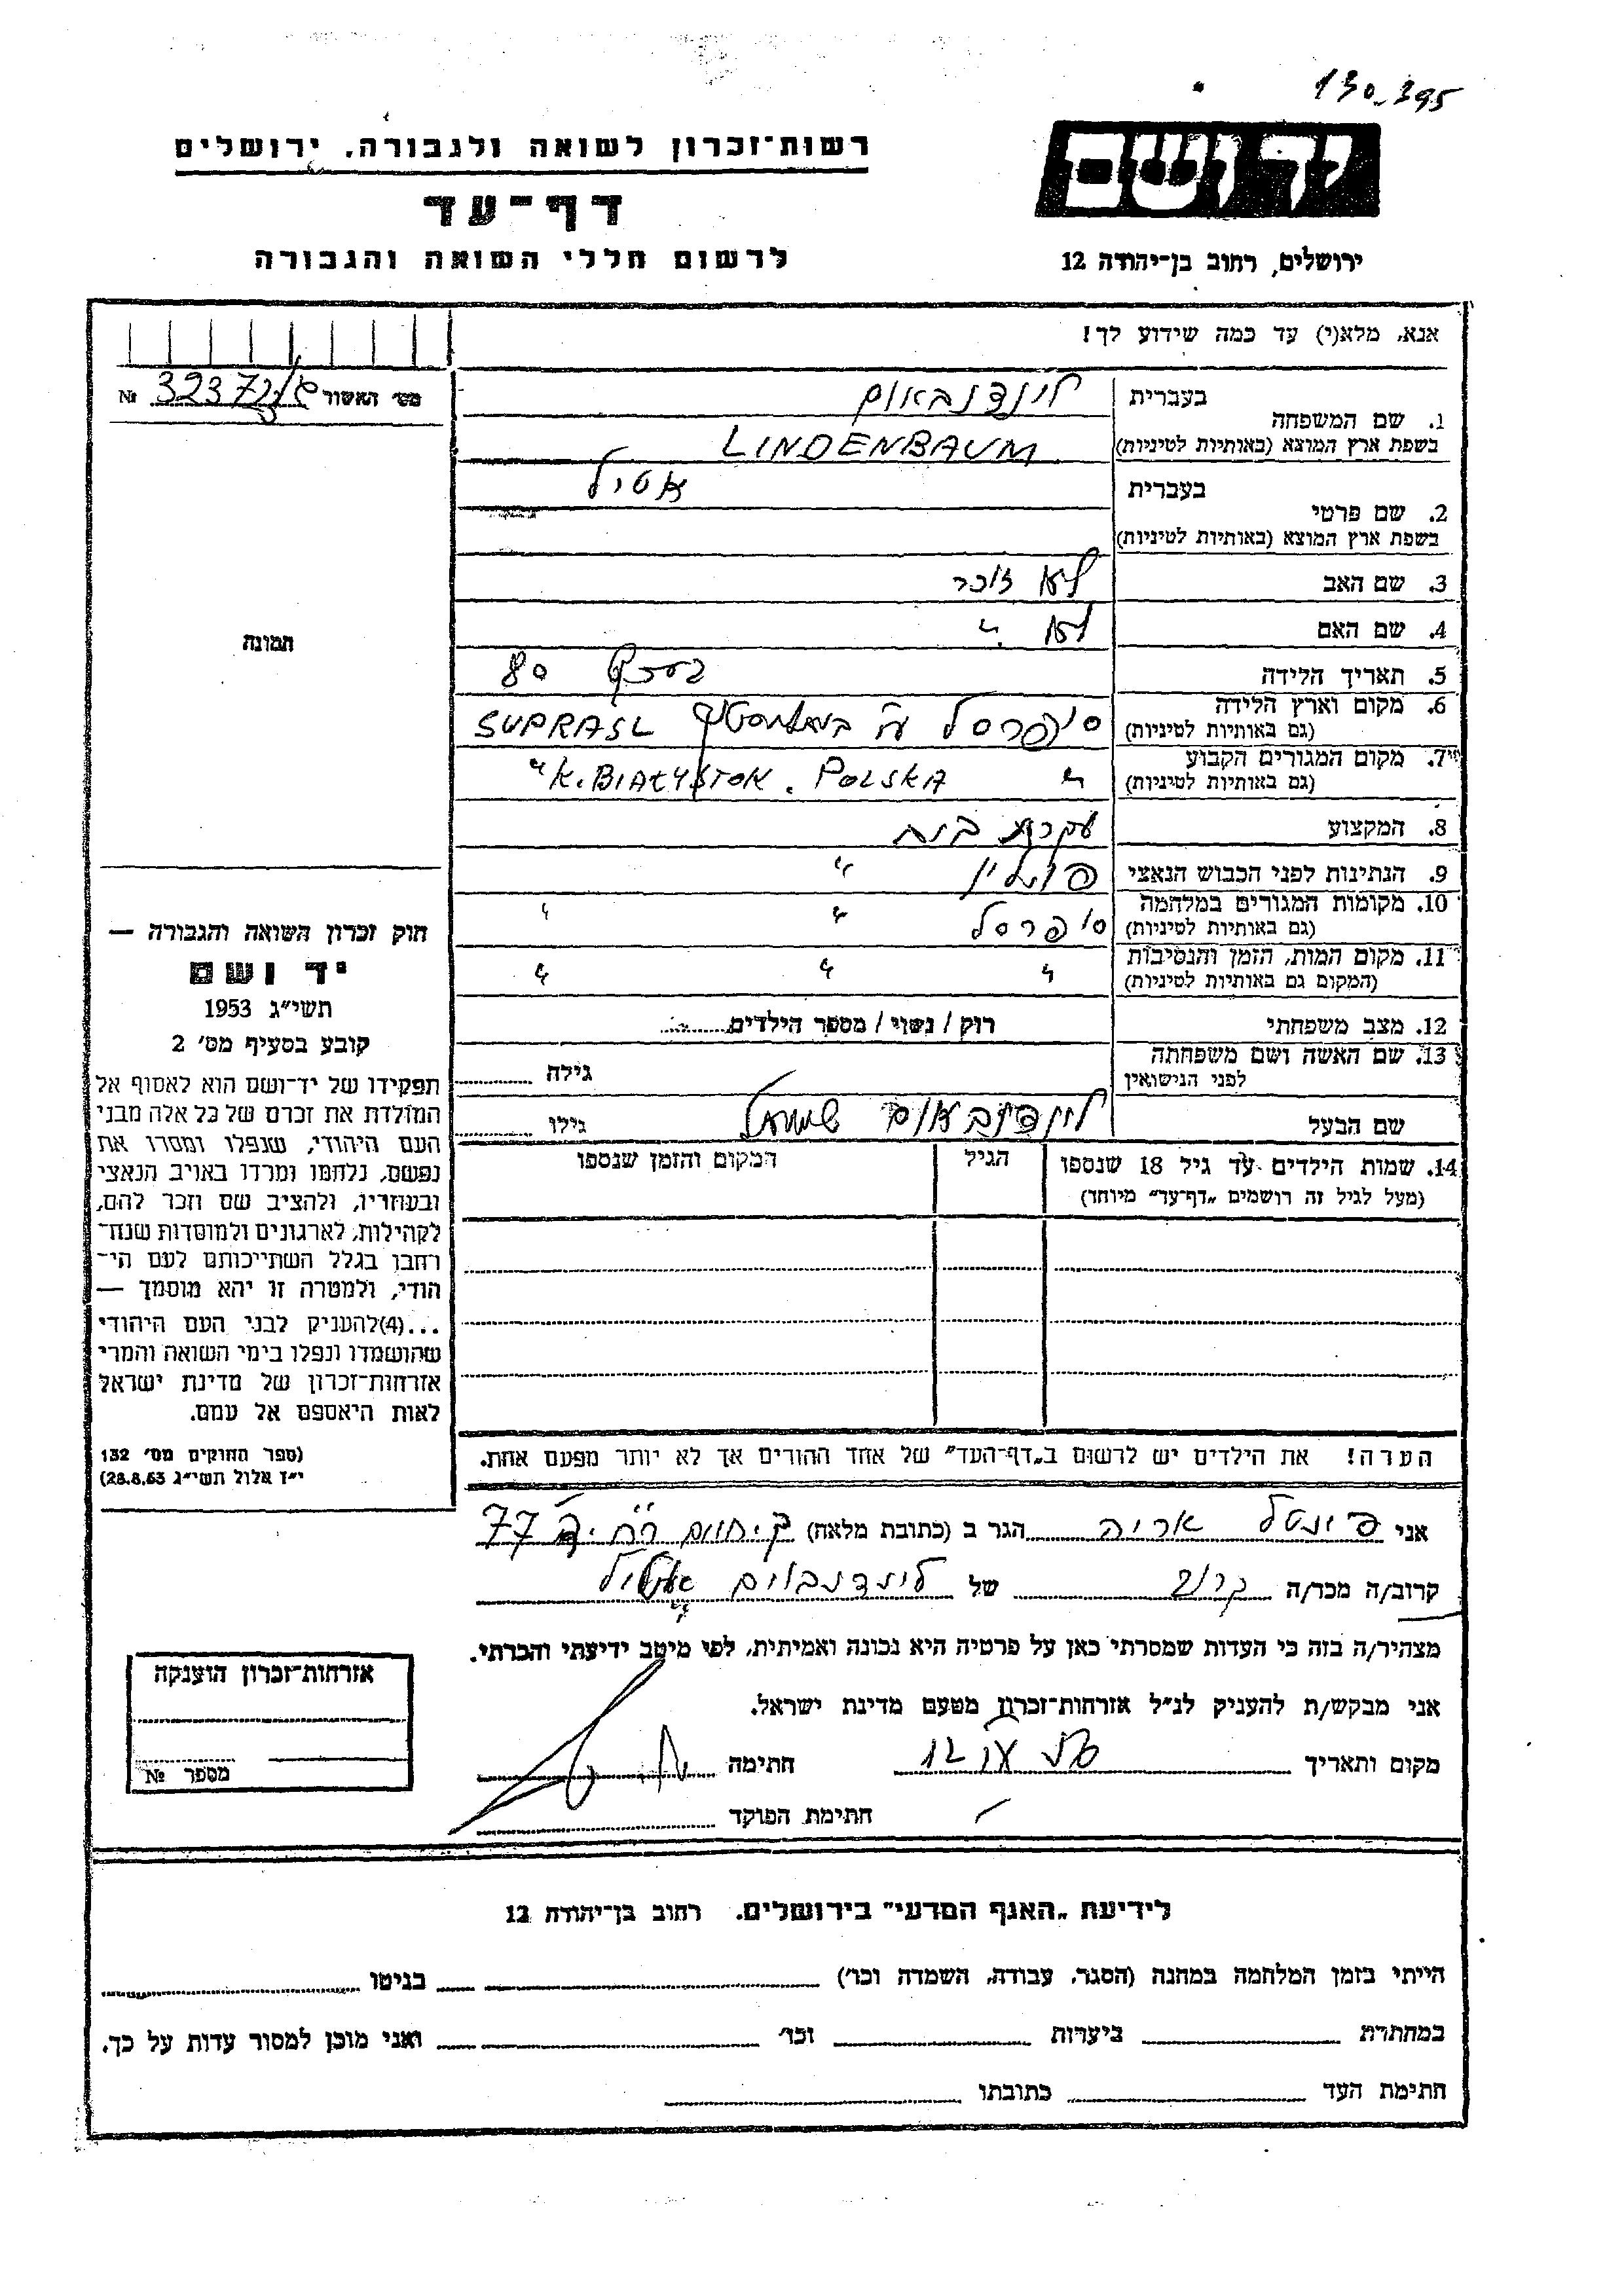 130-395
רשות־זכרון לשואה ולגבורה, ירושלים
יד ושם
דף־עד
לרשום חללי השואה והגבורה
ירושלים, רחוב בן־יהודה 12
אנא, מלא(י) עד כמה שידוע לך!
מס׳ האשור 32372 №
1. שם המשפחה
בעברית לינדנבאום
בשפת ארץ המוצא (באותיות לטיניות) LINDENBAUM
2. שם פרטי
בעברית אטיל
בשפת ארץ המוצא (באותיות לטיניות)
3. שם האב לא זוכר
4. שם האם לא "
5. תאריך הלידה בערך 80
6. מקום וארץ הלידה סופרסל ע"י ביאליסטוק SUPRASL
(גם באותיות לטיניות)
7. מקום המגורים הקבוע " K. BIAŁYSTOK. POLSKA "
(גם באותיות לטיניות)
8. המקצוע עקרת בית
9. הנתינות לפני הכבוש הנאצי פולין "
10. מקומות המגורים במלחמה סופרסל " "
(גם באותיות לטיניות)
11. מקום המות, הזמן והנסיבות " " "
(המקום גם באותיות לטיניות)
12. מצב משפחתי רוק / נשוי / מספר הילדים
13. שם האשה ושם משפחתה גילה
לפני הנישואין
שם הבעל לינדנבאום שמואל גילו
14. שמות הילדים עד גיל 18 שנספו הגיל המקום והזמן שנספו
(מעל לגיל זה רושמים „דף־עד” מיוחד)
הערה! את הילדים יש לרשום ב„דף־העד” של אחד ההורים אך לא יותר מפעם אחת.
תמונה
חוק זכרון השואה והגבורה —
יד ושם
תשי״ג 1953
קובע בסעיף מס׳ 2
תפקידו של יד־ושם הוא לאסוף אל
המולדת את זכרם של כל אלה מבני
העם היהודי, שנפלו ומסרו את
נפשם, נלחמו ומרדו באויב הנאצי
ובעוזריו, ולהציב שם וזכר להם,
לקהילות, לארגונים ולמוסדות שנח־
רבו בגלל השתייכותם לעם הי־
הודי, ולמטרה זו יהא מוסמך —
...(4)להעניק לבני העם היהודי
שהושמדו ונפלו בימי השואה והמרי
אזרחות־זכרון של מדינת ישראל
לאות היאספם אל עמם.
(ספר החוקים מס׳ 132
י״ז אלול תשי״ג 28.8.53)
אני פינטל אריה הגר ב (כתובת מלאה) 77
קרוב/ה מכר/ה קרוב של לינדנבוים אטיל
מצהיר/ה בזה כי העדות שמסרתי כאן על פרטיה היא נכונה ואמיתית, לפי מיטב ידיעתי והכרתי.
אני מבקש/ת להעניק לנ״ל אזרחות־זכרון מטעם מדינת ישראל.
מקום ותאריך חתימה
חתימת הפוקד
אזרחות־זכרון הוענקה
מספר №
לידיעת „האגף המדעי” בירושלים. רחוב בן־יהודה 12
הייתי בזמן המלחמה במחנה (הסגר, עבודה, השמדה וכו׳) בגיטו
במחתרת ביערות וכו׳ ואני מוכן למסור עדות על כך.
חתימת העד כתובתו